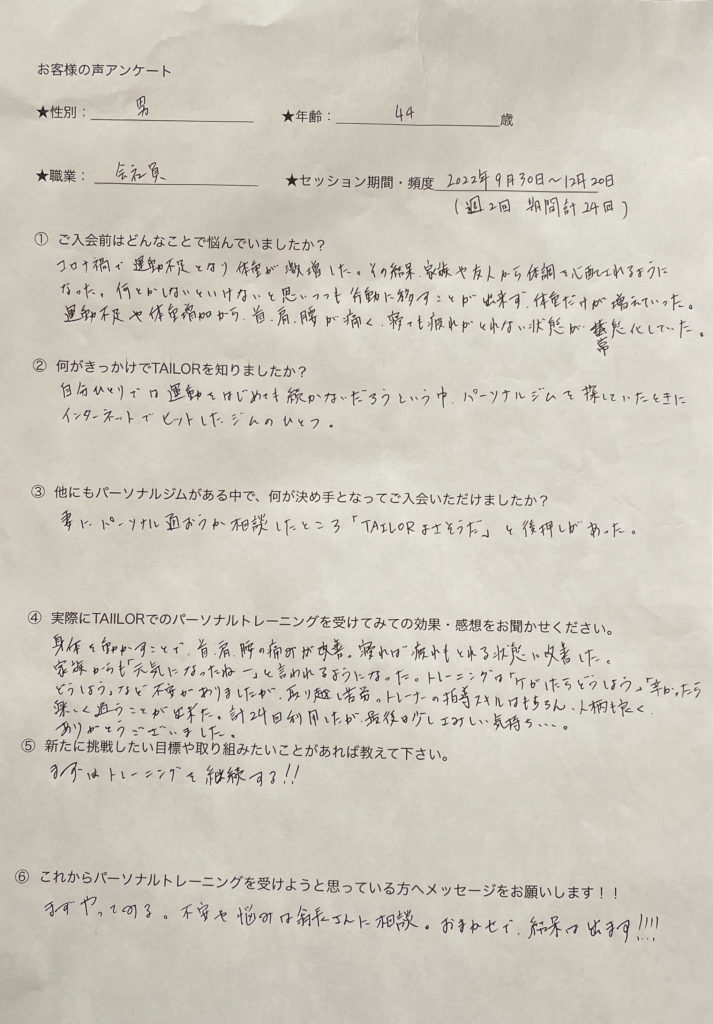 お客様の声アンケート
★性別： 男 ★年齢： 44 歳
★職業： 会社員 ★セッション期間・頻度 2022年9月30日〜12月20日
(週2回 期間計24回)
① ご入会前はどんなことで悩んでいましたか？
コロナ禍で運動不足となり体重が激増した。その結果、家族や友人から体調を心配されるように
なった。何とかしないといけないと思いつつも行動に移すことが出来ず、体重だけが増えていった。
運動不足や体重増加から、首、肩、腰が痛く、寝ても疲れがとれない状態が常態化していた。
② 何がきっかけでTAILORを知りましたか？
自分ひとりでは運動をはじめても続かないだろうという中、パーソナルジムを探していたときに
インターネットでヒットしたジムのひとつ。
③ 他にもパーソナルジムがある中で、何が決め手となってご入会いただけましたか？
妻にパーソナル通おうか相談したところ「TAILORよさそうだ」と後押しがあった。
④ 実際にTAIILORでのパーソナルトレーニングを受けてみての効果・感想をお聞かせください。
身体を動かすことで、首、肩、腰の痛みが改善。寝れば疲れもとれる状態に改善した。
家族からも「元気になったねー」と言われるようになった。トレーニングは「ケガしたらどうしよう」「辛かったら
どうしよう」など不安がありましたが、取り越し苦労。トレーナーの指導スキルはもちろん、人柄も良く、
楽しく通うことが出来た。計24回利用したが、最後は少しさみしい気持ち・・・。
ありがとうございました。
⑤ 新たに挑戦したい目標や取り組みたいことがあれば教えて下さい。
まずはトレーニングを継続する!!
⑥ これからパーソナルトレーニングを受けようと思っている方へメッセージをお願いします！！
まずやってみる。不安や悩みは さんに相談。おまかせで、結果は出ます!!!!